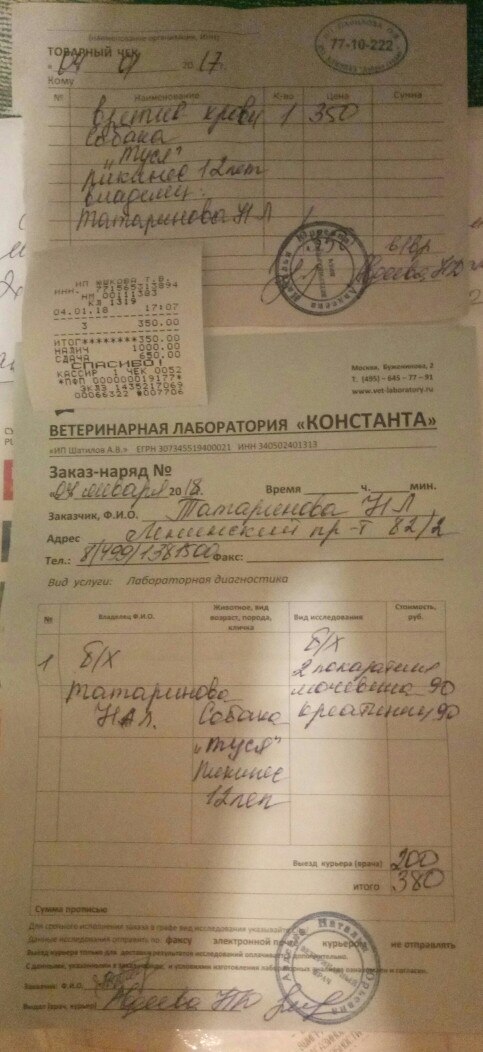 (наименование организации, ИНН)
77-10-222
ТОВАРНЫЙ ЧЕК
« 04 01 2017г.
Кому
№ Наименование К-во Цена Сумма
взятие крови 1 350
собака
„Туся"
пикинес 12 лет
владелец:
Татаринова НЛ
ИП ЮШКОВА Г.В.
ИНН. 771565313894
НМ 00111383
КЛ 1319
04.01.18 17:07
3 350.00
ИТОГ********350.00
НАЛИЧ 1000.00
СДАЧА 650.00
СПАСИБО!
КАССИР 1 ЧЕК 0052
*ПФП 000000019177*
ЭКЛЗ 1435217069
00066322 #007706
Москва, Буженинова, 2
Т. (495) – 645 – 77 – 91
www.vet-laboratory.ru
ВЕТЕРИНАРНАЯ ЛАБОРАТОРИЯ «КОНСТАНТА»
«ИП Шатилов А.В.» ЕГРН 307345519400021 ИНН 340502401313
Заказ-наряд №
«04 января 2018. Время ч. мин.
Заказчик, Ф.И.О. Татаринова НЛ
Адрес Ленинский пр-т 82/2
Тел.: 8(499)1381500 Факс:
Вид услуги: Лабораторная диагностика
№ Владелец Ф.И.О. Животное, вид возраст, порода, кличка Вид исследования Стоимость, руб.
1 Б/Х Б/Х
2 показателя
Татаринова мочевина 90
НЛ. Собака креатинин 90
„Туся"
Пикинес
12 лет
Выезд курьера (врача) 200
ИТОГО 380
Сумма прописью
Для срочного исполнения заказа в графе вид исследования указывайте
Данные исследования отправить по факсу электронной почте курьером не отправлять
Выезд курьера только для доставки результатов исследований оплачивается дополнительно.
С данными, указанными в заказе-наряде, и условиями изготовления лабораторных анализов ознакомлен и согласен.
Заказчик Ф.И.О.
Выдал (врач, курьер) Авдеева НЮ